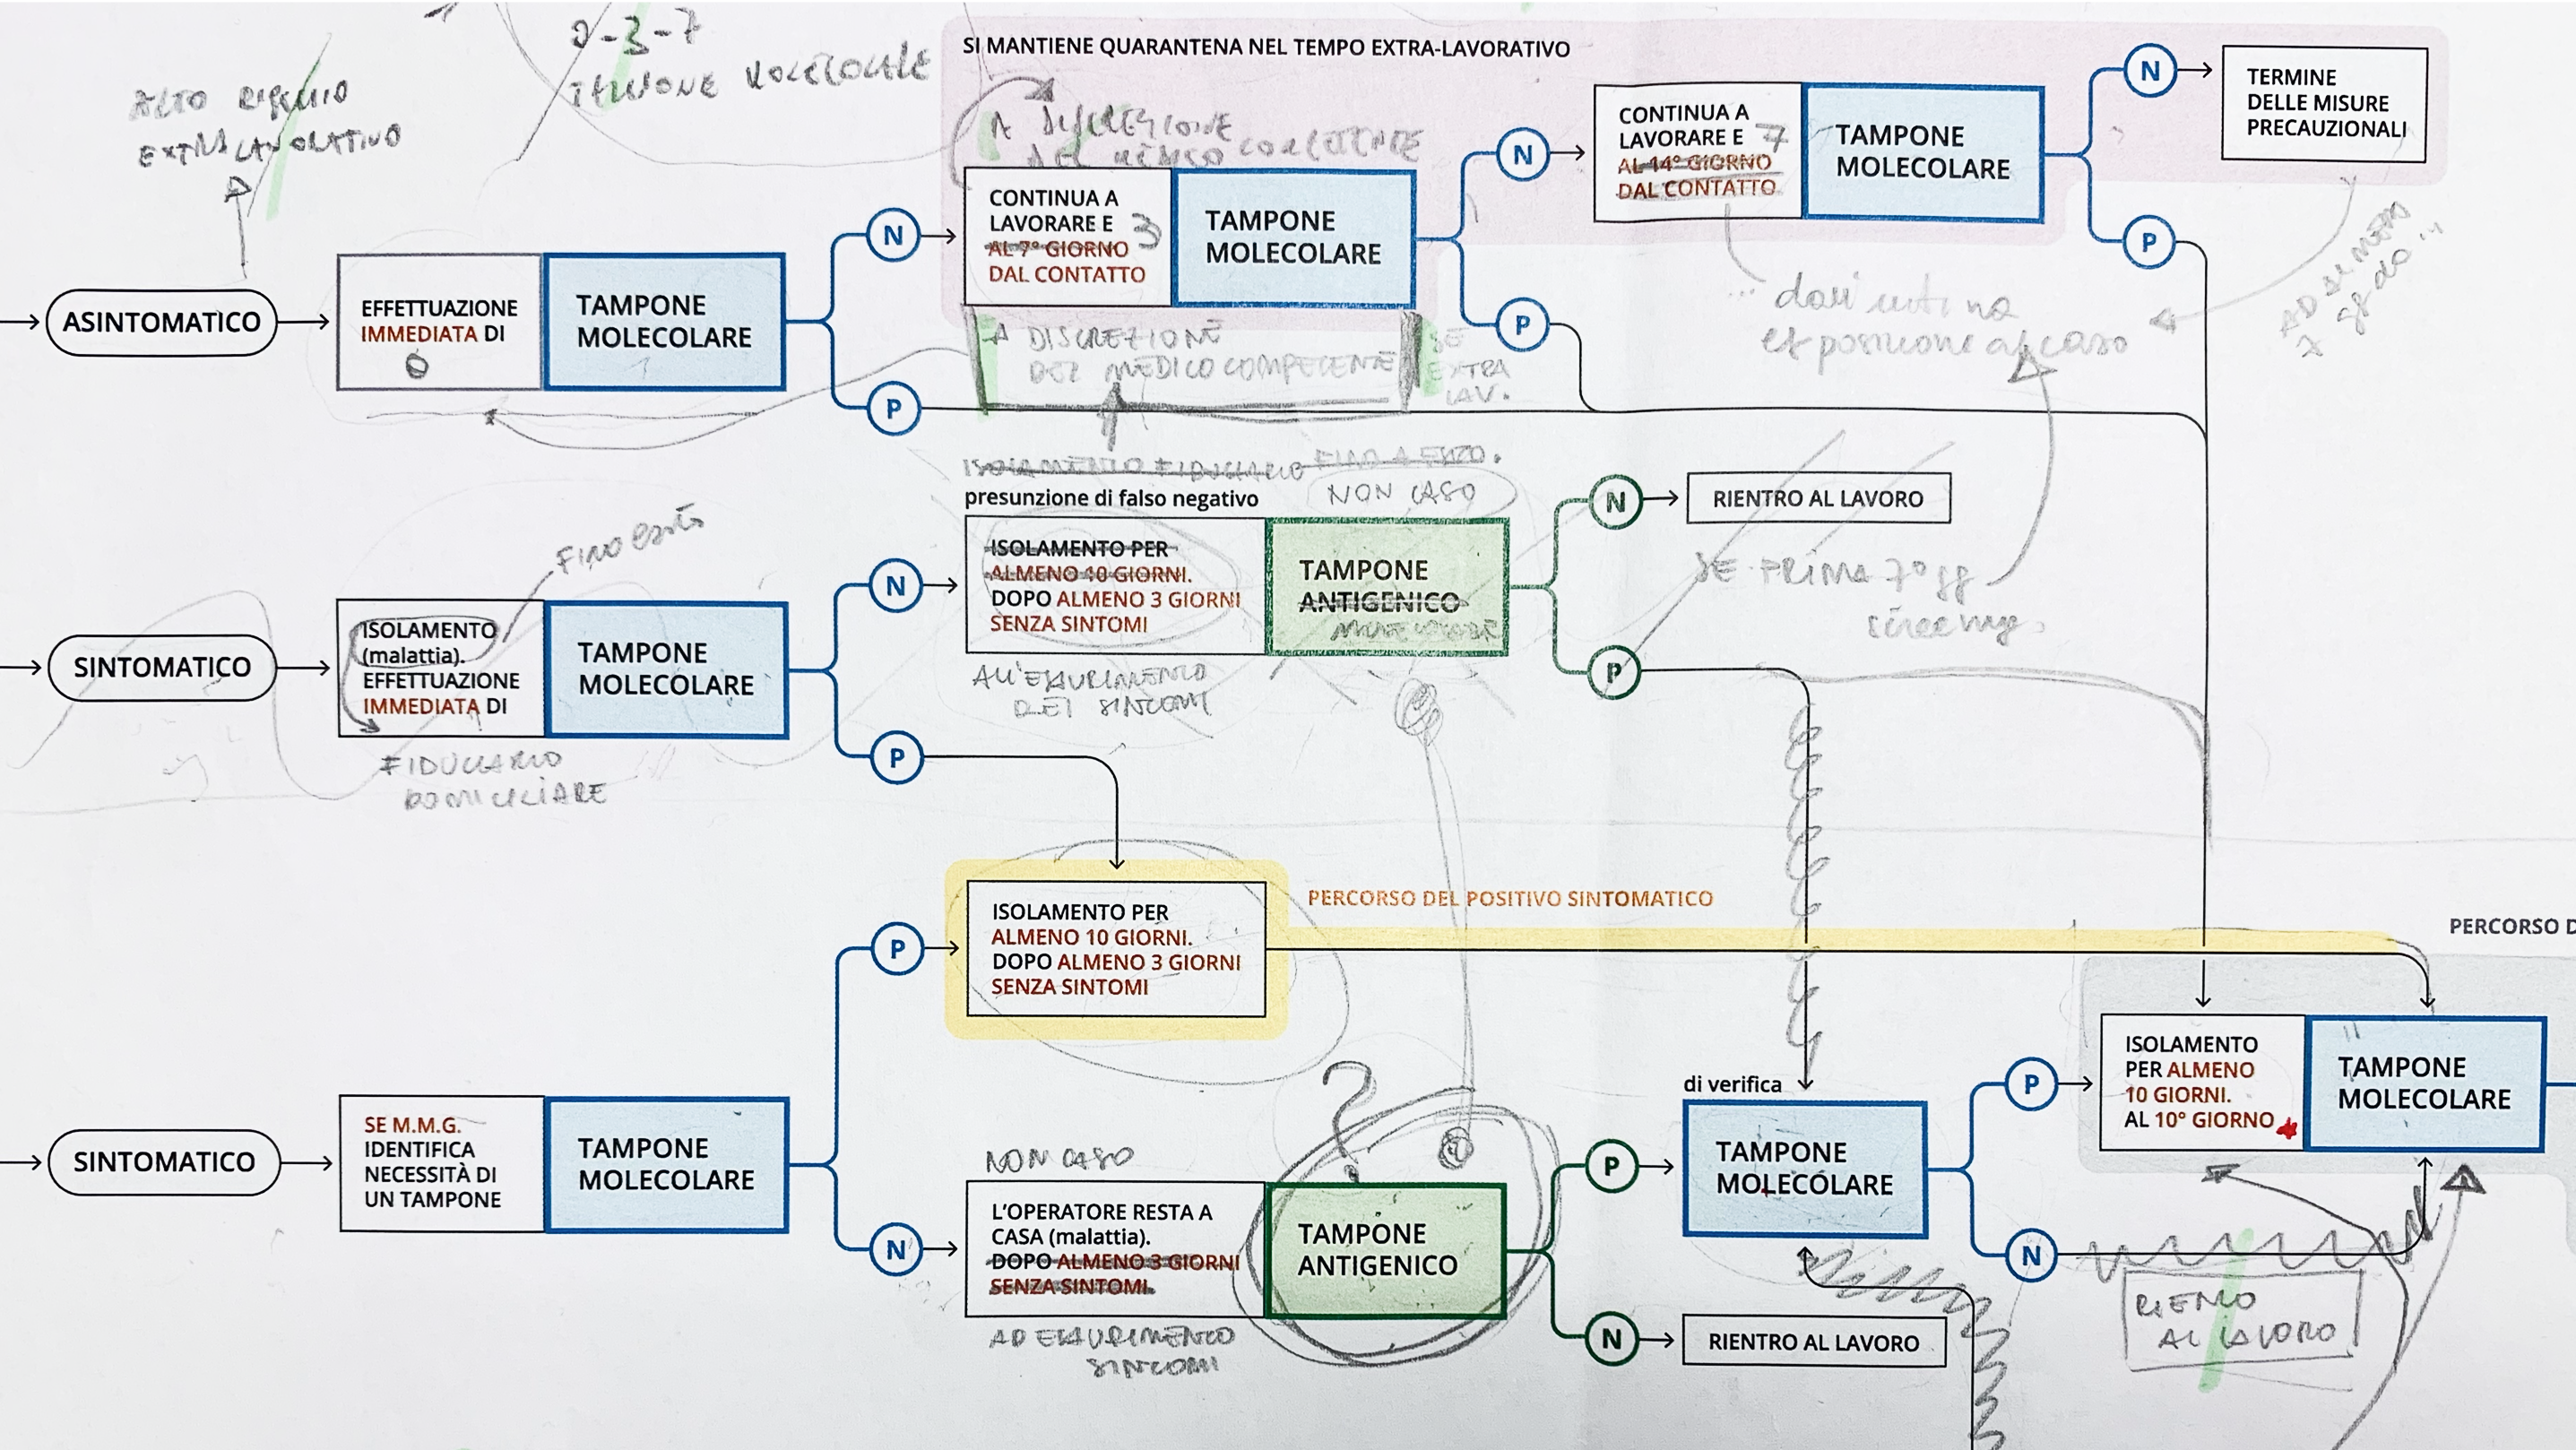 0-3-7
TAMPONE MOLECOLARE
ALTO RISCHIO
EXTRALAVORATIVO
SI MANTIENE QUARANTENA NEL TEMPO EXTRA-LAVORATIVO
A DISCREZIONE
DEL MEDICO COMPETENTE
ASINTOMATICO
EFFETTUAZIONE
IMMEDIATA DI
0
TAMPONE
MOLECOLARE
N
P
CONTINUA A
LAVORARE E
AL 7° GIORNO
3
DAL CONTATTO
TAMPONE
MOLECOLARE
N
P
CONTINUA A
LAVORARE E
7
AL 14° GIORNO
DAL CONTATTO
TAMPONE
MOLECOLARE
N
P
TERMINE
DELLE MISURE
PRECAUZIONALI
A DISCREZIONE
DEL MEDICO COMPETENTE
SE
EXTRA
LAV.
esposizione al caso
ISOLAMENTO FIDUCIARIO
presunzione di falso negativo
NON CASO
FINO esito
SINTOMATICO
ISOLAMENTO
(malattia).
EFFETTUAZIONE
IMMEDIATA DI
TAMPONE
MOLECOLARE
FIDUCIARIO
DOMICILIARE
N
P
ISOLAMENTO PER
ALMENO 10 GIORNI.
DOPO ALMENO 3 GIORNI
SENZA SINTOMI
TAMPONE
ANTIGENICO
MOLECOLARE
ALL'ESAURIMENTO
DEI SINTOMI
N
RIENTRO AL LAVORO
P
SE PRIMA 7° gg
screening
PERCORSO DEL POSITIVO SINTOMATICO
PERCORSO D
P
ISOLAMENTO PER
ALMENO 10 GIORNI.
DOPO ALMENO 3 GIORNI
SENZA SINTOMI
SINTOMATICO
SE M.M.G.
IDENTIFICA
NECESSITÀ DI
UN TAMPONE
TAMPONE
MOLECOLARE
N
NON CASO
L'OPERATORE RESTA A
CASA (malattia).
DOPO ALMENO 3 GIORNI
SENZA SINTOMI.
AD ESAURIMENTO
SINTOMI
?
TAMPONE
ANTIGENICO
P
N
RIENTRO AL LAVORO
di verifica
TAMPONE
MOLECOLARE
P
N
ISOLAMENTO
PER ALMENO
10 GIORNI.
AL 10° GIORNO
TAMPONE
MOLECOLARE
RIENTRO
AL LAVORO